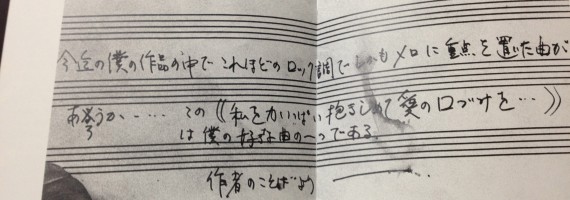 今迄の僕の作品の中でこれほどのロック調でしかもメロに重点を置いた曲が
あろうか…… この《私を力いっぱい抱きしめて 愛の口づけを…》
は僕の好きな曲の一つである。
作者のことばより